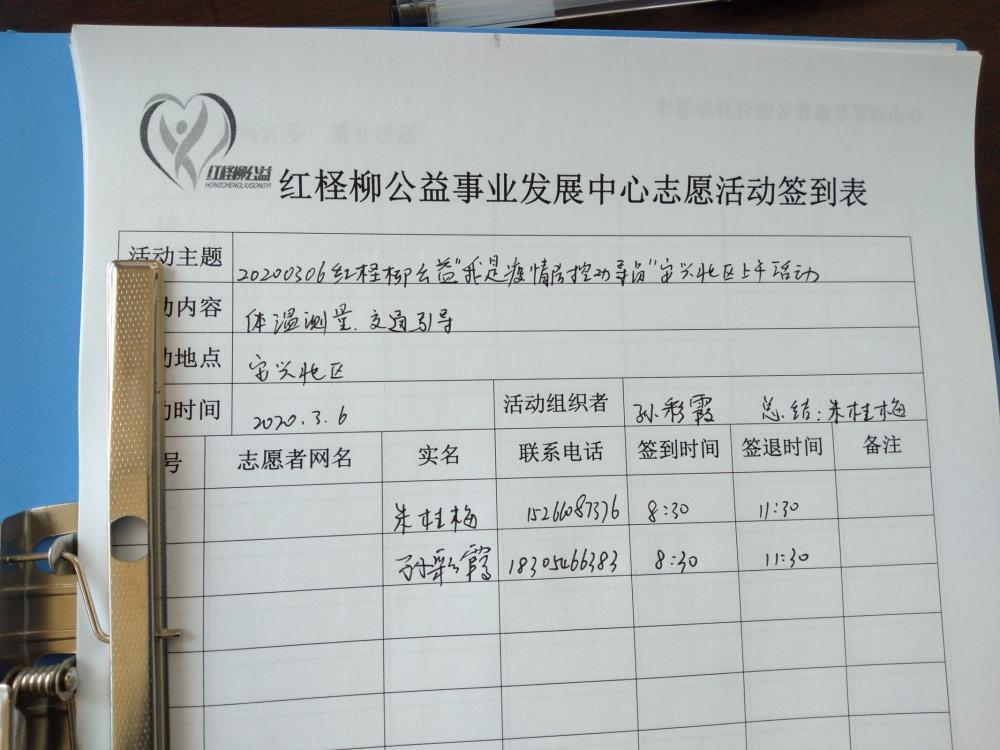 红柽柳公益
HONGCHENGLIUGONGYI
红柽柳公益事业发展中心志愿活动签到表
活动主题 20200306红柽柳公益"我是疫情防控劝导员"宝兴北区上午活动
动内容 体温测量.交通引导
动地点 宝兴北区
动时间 2020.3.6 活动组织者 孙彩霞 总结:朱桂梅
号 志愿者网名 实名 联系电话 签到时间 签退时间 备注
朱桂梅 15266087376 8:30 11:30
孙彩霞 18305466383 8:30 11:30